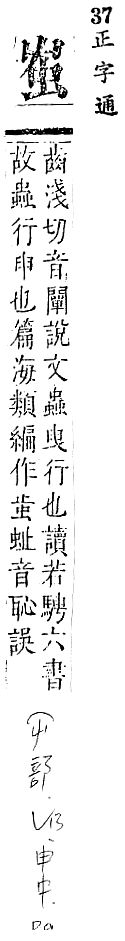 37 正字通
蚩
齒淺切音闡說文蟲曳行也讀若騁六書
故蟲行申也篇海類編作蚩蚩音恥誤
(屮部.